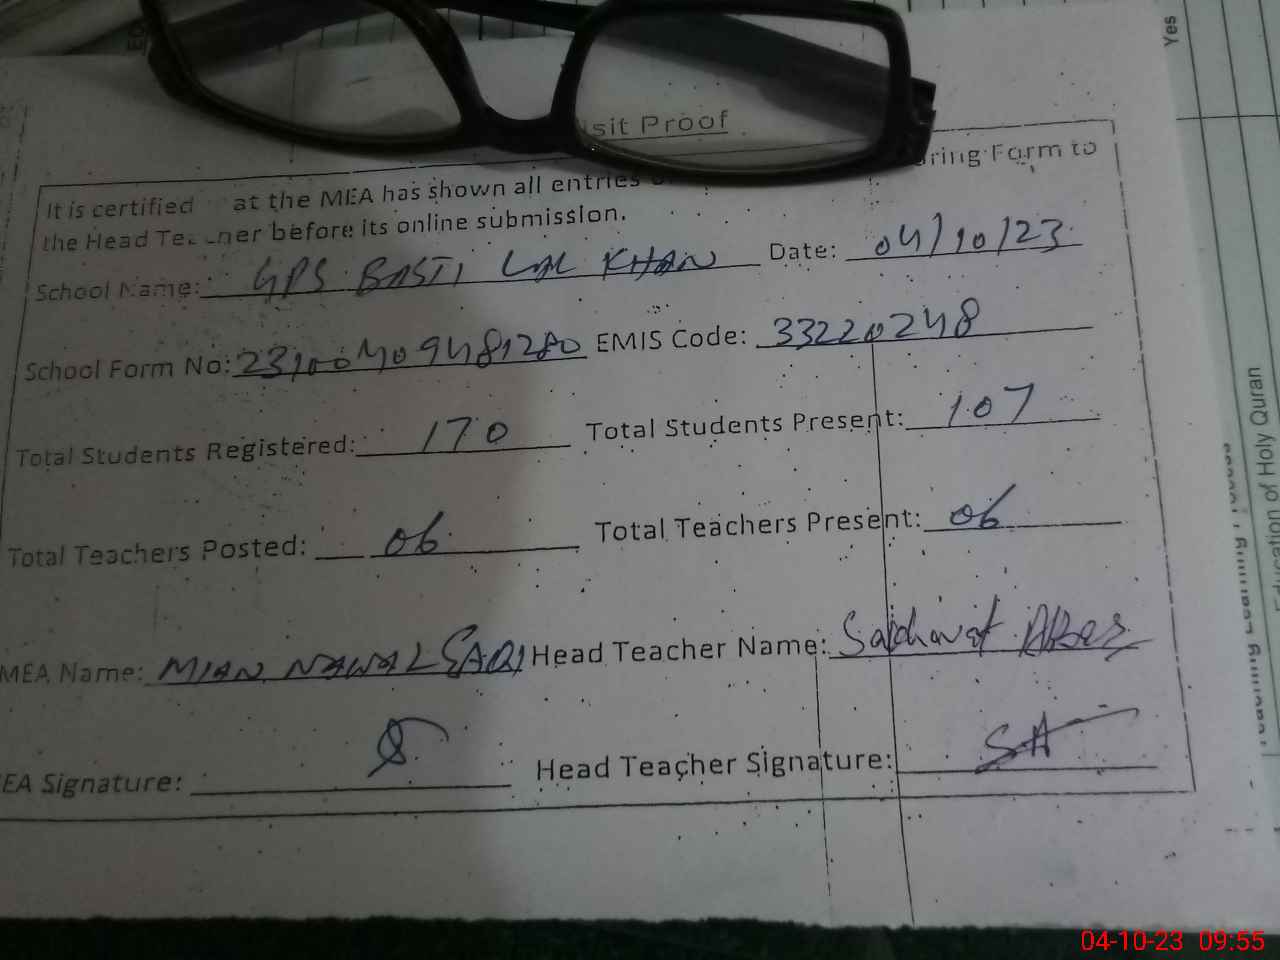 Visit Proof
It is certified at the MEA has shown all entries ring Form to
the Head Teacher before its online submission.
School Name: GPS BASTI LAL KHAN Date: 04/10/23
School Form No: EMIS Code: 33220248
Total Students Registered: 170 Total Students Present: 107
Total Teachers Posted: 06 Total Teachers Present: 06
MEA Name: MIAN NAWAL Head Teacher Name:
EA Signature: Head Teacher Signature: SA
Yes
Education of Holy Quran
04-10-23 09:55